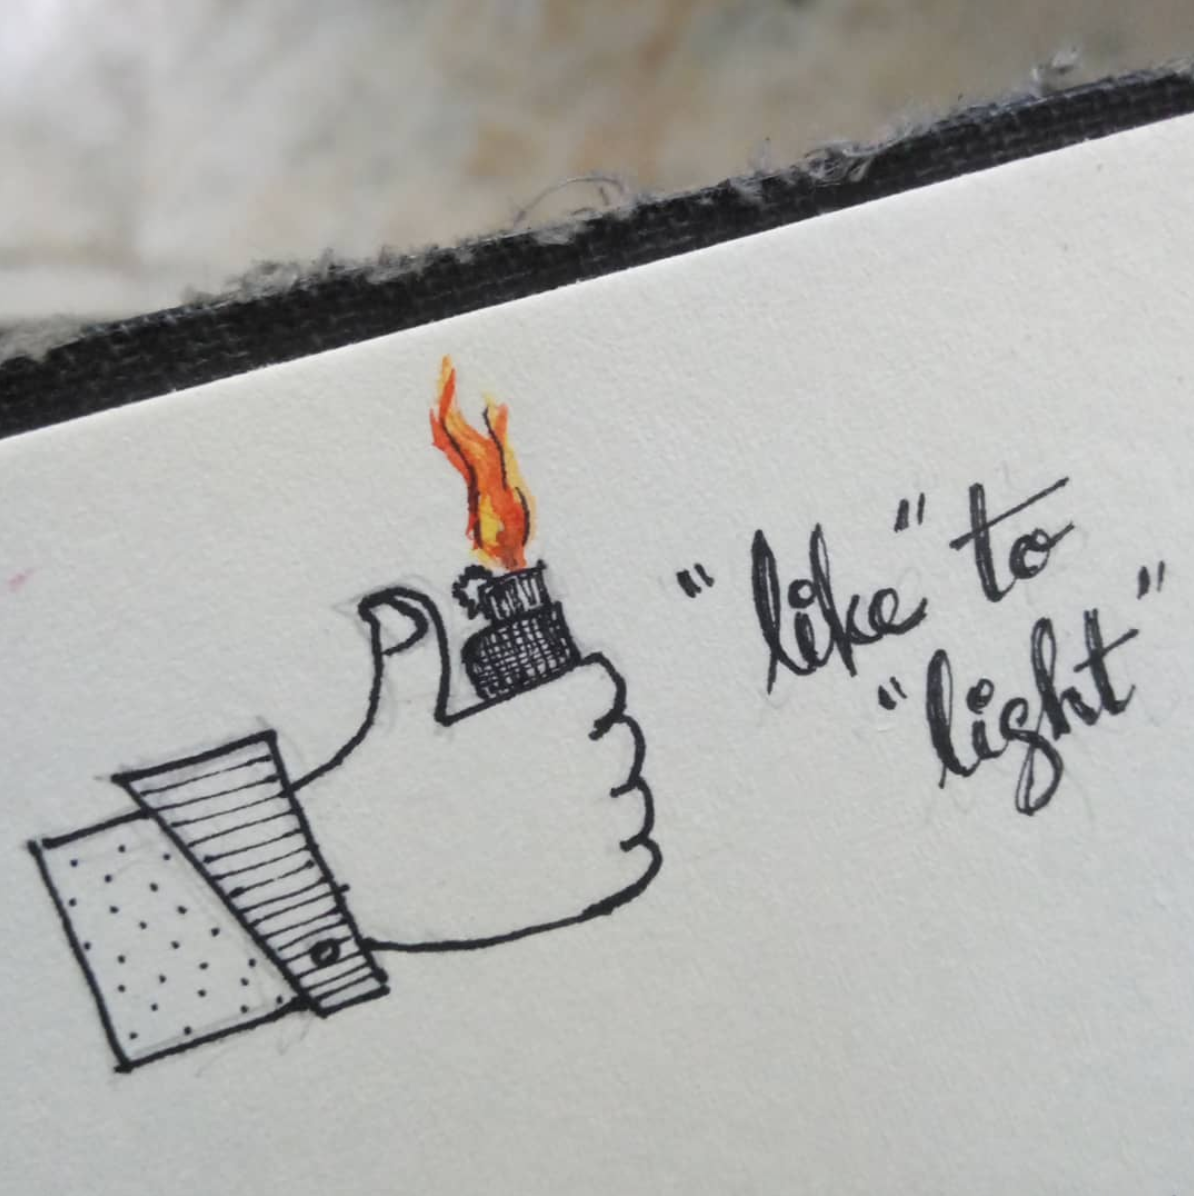 "like" to
"light"